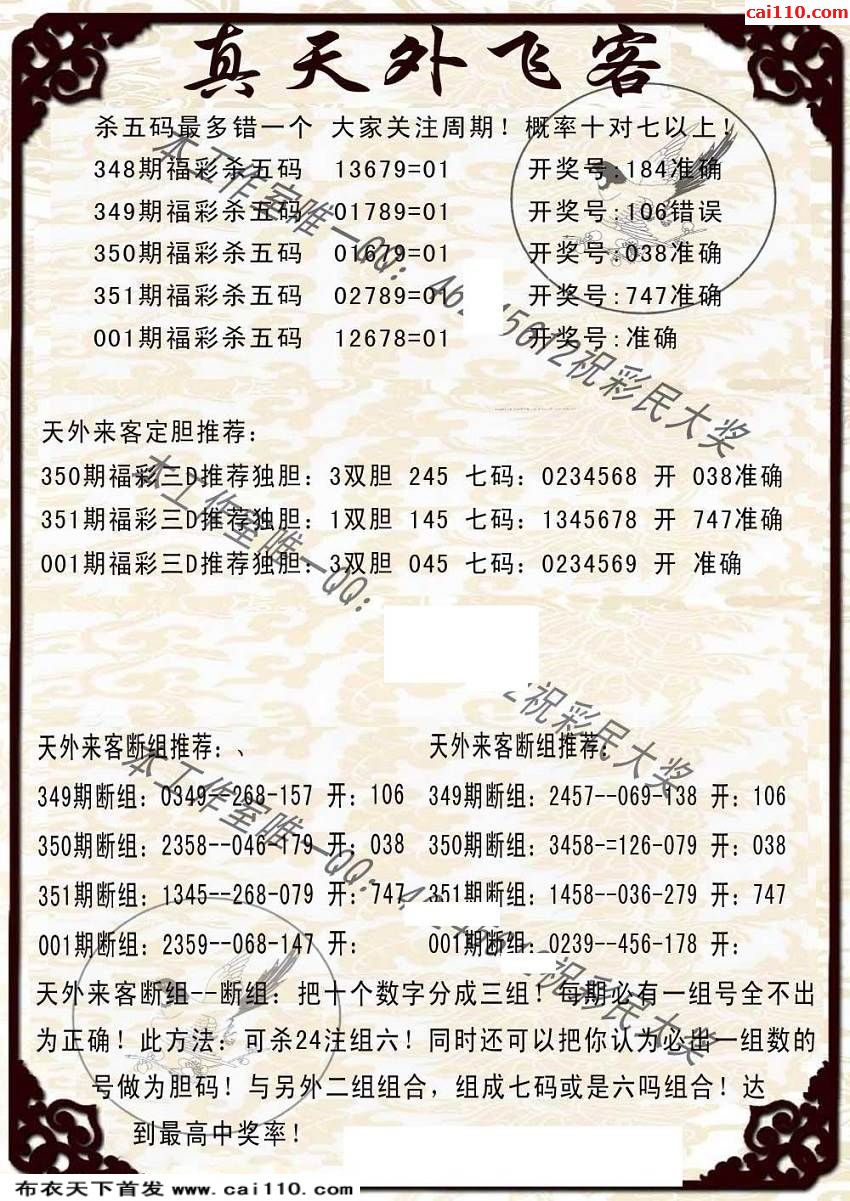 cai110.com
真天外飞客
杀五码最多错一个 大家关注周期！概率十对七以上！
348期福彩杀五码 13679=01 开奖号:184准确
349期福彩杀五码 01789=01 开奖号:106错误
350期福彩杀五码 01679=01 开奖号:038准确
351期福彩杀五码 02789=01 开奖号:747准确
001期福彩杀五码 12678=01 开奖号:准确
本工作室唯一QQ:
祝彩民大奖
天外来客定胆推荐：
350期福彩三D推荐独胆：3双胆 245 七码：0234568 开 038准确
351期福彩三D推荐独胆：1双胆 145 七码：1345678 开 747准确
001期福彩三D推荐独胆：3双胆 045 七码：0234569 开 准确
本工作室唯一QQ:
祝彩民大奖
天外来客断组推荐：、 天外来客断组推荐：
349期断组：0349--268-157 开：106 349期断组：2457--069-138 开：106
350期断组：2358--046-179 开：038 350期断组：3458-=126-079 开：038
351期断组：1345--268-079 开：747 351期断组：1458--036-279 开：747
001期断组：2359--068-147 开： 001期断组：0239--456-178 开：
本工作室唯一QQ:
祝彩民大奖
天外来客断组--断组：把十个数字分成三组！每期必有一组号全不出
为正确！此方法：可杀24注组六！同时还可以把你认为必出一组数的
号做为胆码！与另外二组组合，组成七码或是六吗组合！达
到最高中奖率！
布衣天下首发 www.cai110.com